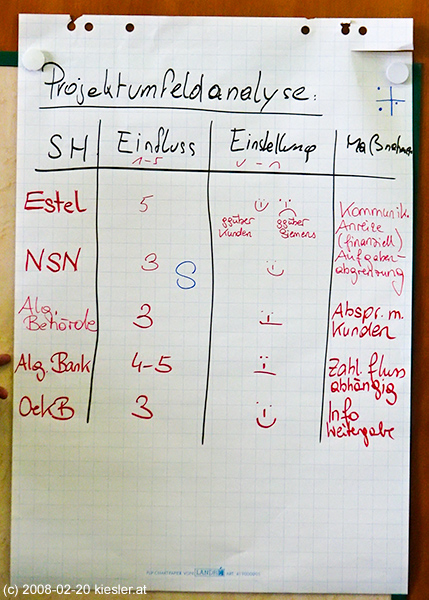 Projektumfeldanalyse:
SH Einfluss Einstellung Maßnahmen
1-5
Estel 5 ggüber Kunden ggüber Siemens Kommunik.
Anreize
(finanziell)
NSN 3 Aufgaben-
abgrenzung
S
Alg. Behörde 3 Abspr. m.
Kunden
Alg. Bank 4-5 Zahl. fluss
abhängig
OeKB 3 Info
Weitergabe
(c) 2008-02-20 kiesler.at